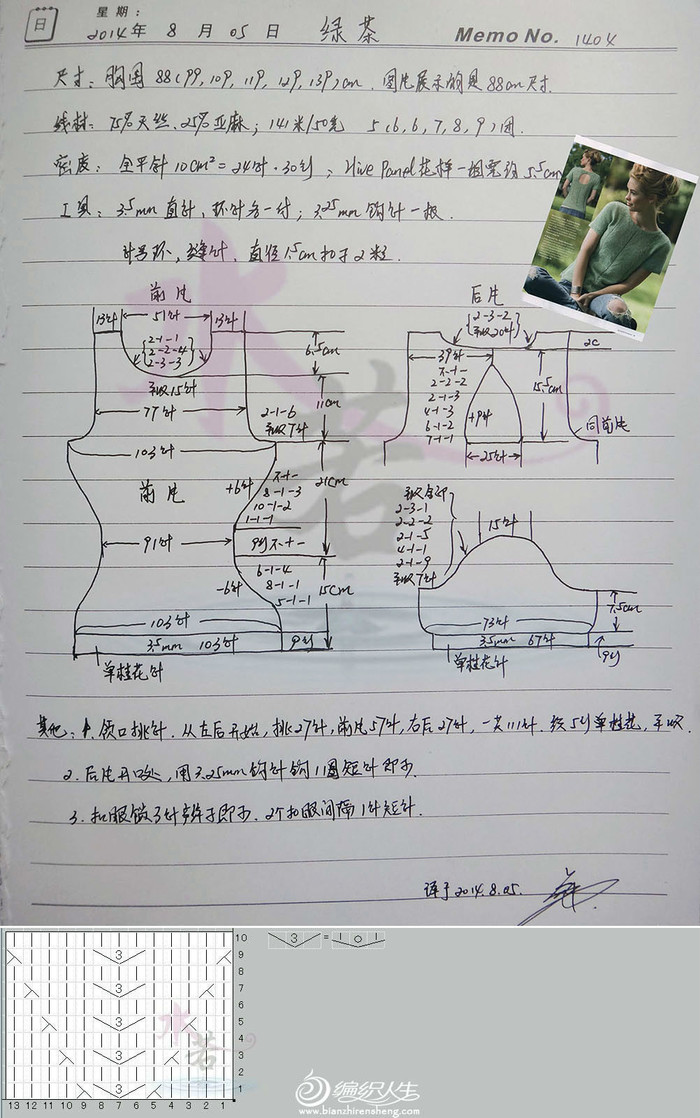 日
星期:
2014年 8月 05日 绿茶 Memo No. 1404
尺寸: 胸围 88(99, 109, 119, 129, 139)cm. 图片展示的是88cm尺寸.
线材: 75%天丝、25%亚麻; 141米/50克 5(6, 6, 7, 8, 9)团.
密度: 全平针 10cm²=24针·30行; Hive Panel花样一组宽约5.5cm
工具: 3.5mm直针、环针各一付; 3.25mm钩针一根.
计号环, 缝针、直径1.5cm扣子2粒.
前片
13针 51针 13针
2-1-1
2-2-4
2-3-3
平收15针
6.5cm
11cm
77针
2-1-6
平收7针
103针
前片
+6针
不+-
8-1-3
10-1-2
1-1-1
21cm
91针
9行不+-
6-1-4
8-1-1
5-1-1
-6针
15cm
103针
3.5mm 103针
9行
单桂花针
后片
2-3-2
平收20针
2C
39针
不+-
2-2-2
2-1-3
4-1-3
6-1-2
7-1-1
+9针
15.5cm
同前片
25针
平收全部
2-3-1
2-2-2
2-1-5
4-1-1
2-1-9
平收7针
15针
7.5cm
73针
3.5mm 67针
9行
单桂花针
其他: 1. 领口挑针. 从左后开始, 挑27针, 前片57针, 右后27针, 一共111针. 织5行单桂花, 平收.
2. 后片开口处, 用3.25mm钩针钩1圈短针即可.
3. 扣眼锁3针辫子即可. 2个扣眼间隔1针短针.
译于2014.8.05.
10
9
8
7
6
5
4
3
2
1
13 12 11 10 9 8 7 6 5 4 3 2 1
3
3
3
3
3
3 = 1 0 1
水若
水若
编织人生
www.bianzhirensheng.com